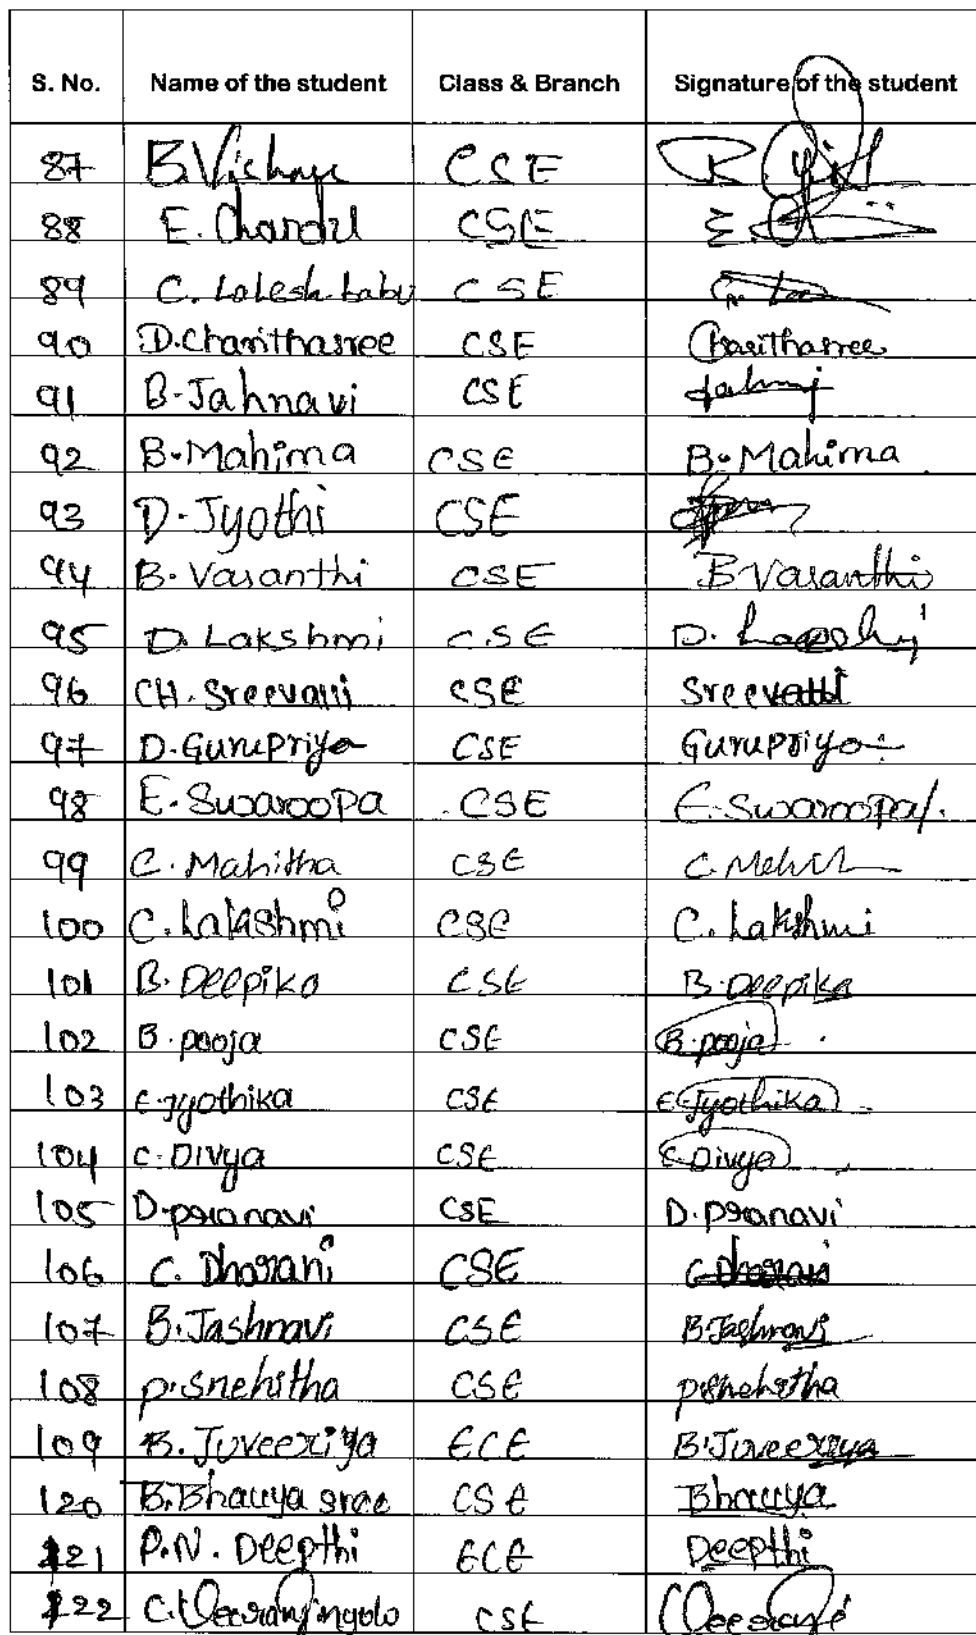 S. No. Name of the student Class & Branch Signature of the student
87 B.Vishnu CSE
88 E. Chandu CSE E.
89 C. Lolesh babu CSE
90 D.Charithasree CSE Charithasree
91 B.Jahnavi CSE
92 B.Mahima CSE B.Mahima
93 D.Jyothi CSE
94 B.Vasanthi CSE B Vasanthi
95 D.Lakshmi CSE D.
96 CH.Sreevalli CSE Sreevalli
97 D.Gurupriya CSE Gurupriya
98 E.Swaroopa CSE E.Swaroopa
99 C.Mahitha CSE C.
100 C.Lakashmi CSE C.Lakshmi
101 B.Deepika CSE B.Deepika
102 B.pooja CSE B.pooja
103 E.jyothika CSE E.Jyothika
104 C.Divya CSE C.Divya
105 D.pranavi CSE D.pranavi
106 C. Dharani CSE C.Dharani
107 B.Jashnavi CSE B.Jashnavi
108 p.snehitha CSE p.snehitha
109 B.Juveeriya ECE B.Juveeriya
120 B.Bhavya sree CSE Bhavya
121 P.N.Deepthi ECE Deepthi
122 C. CSE